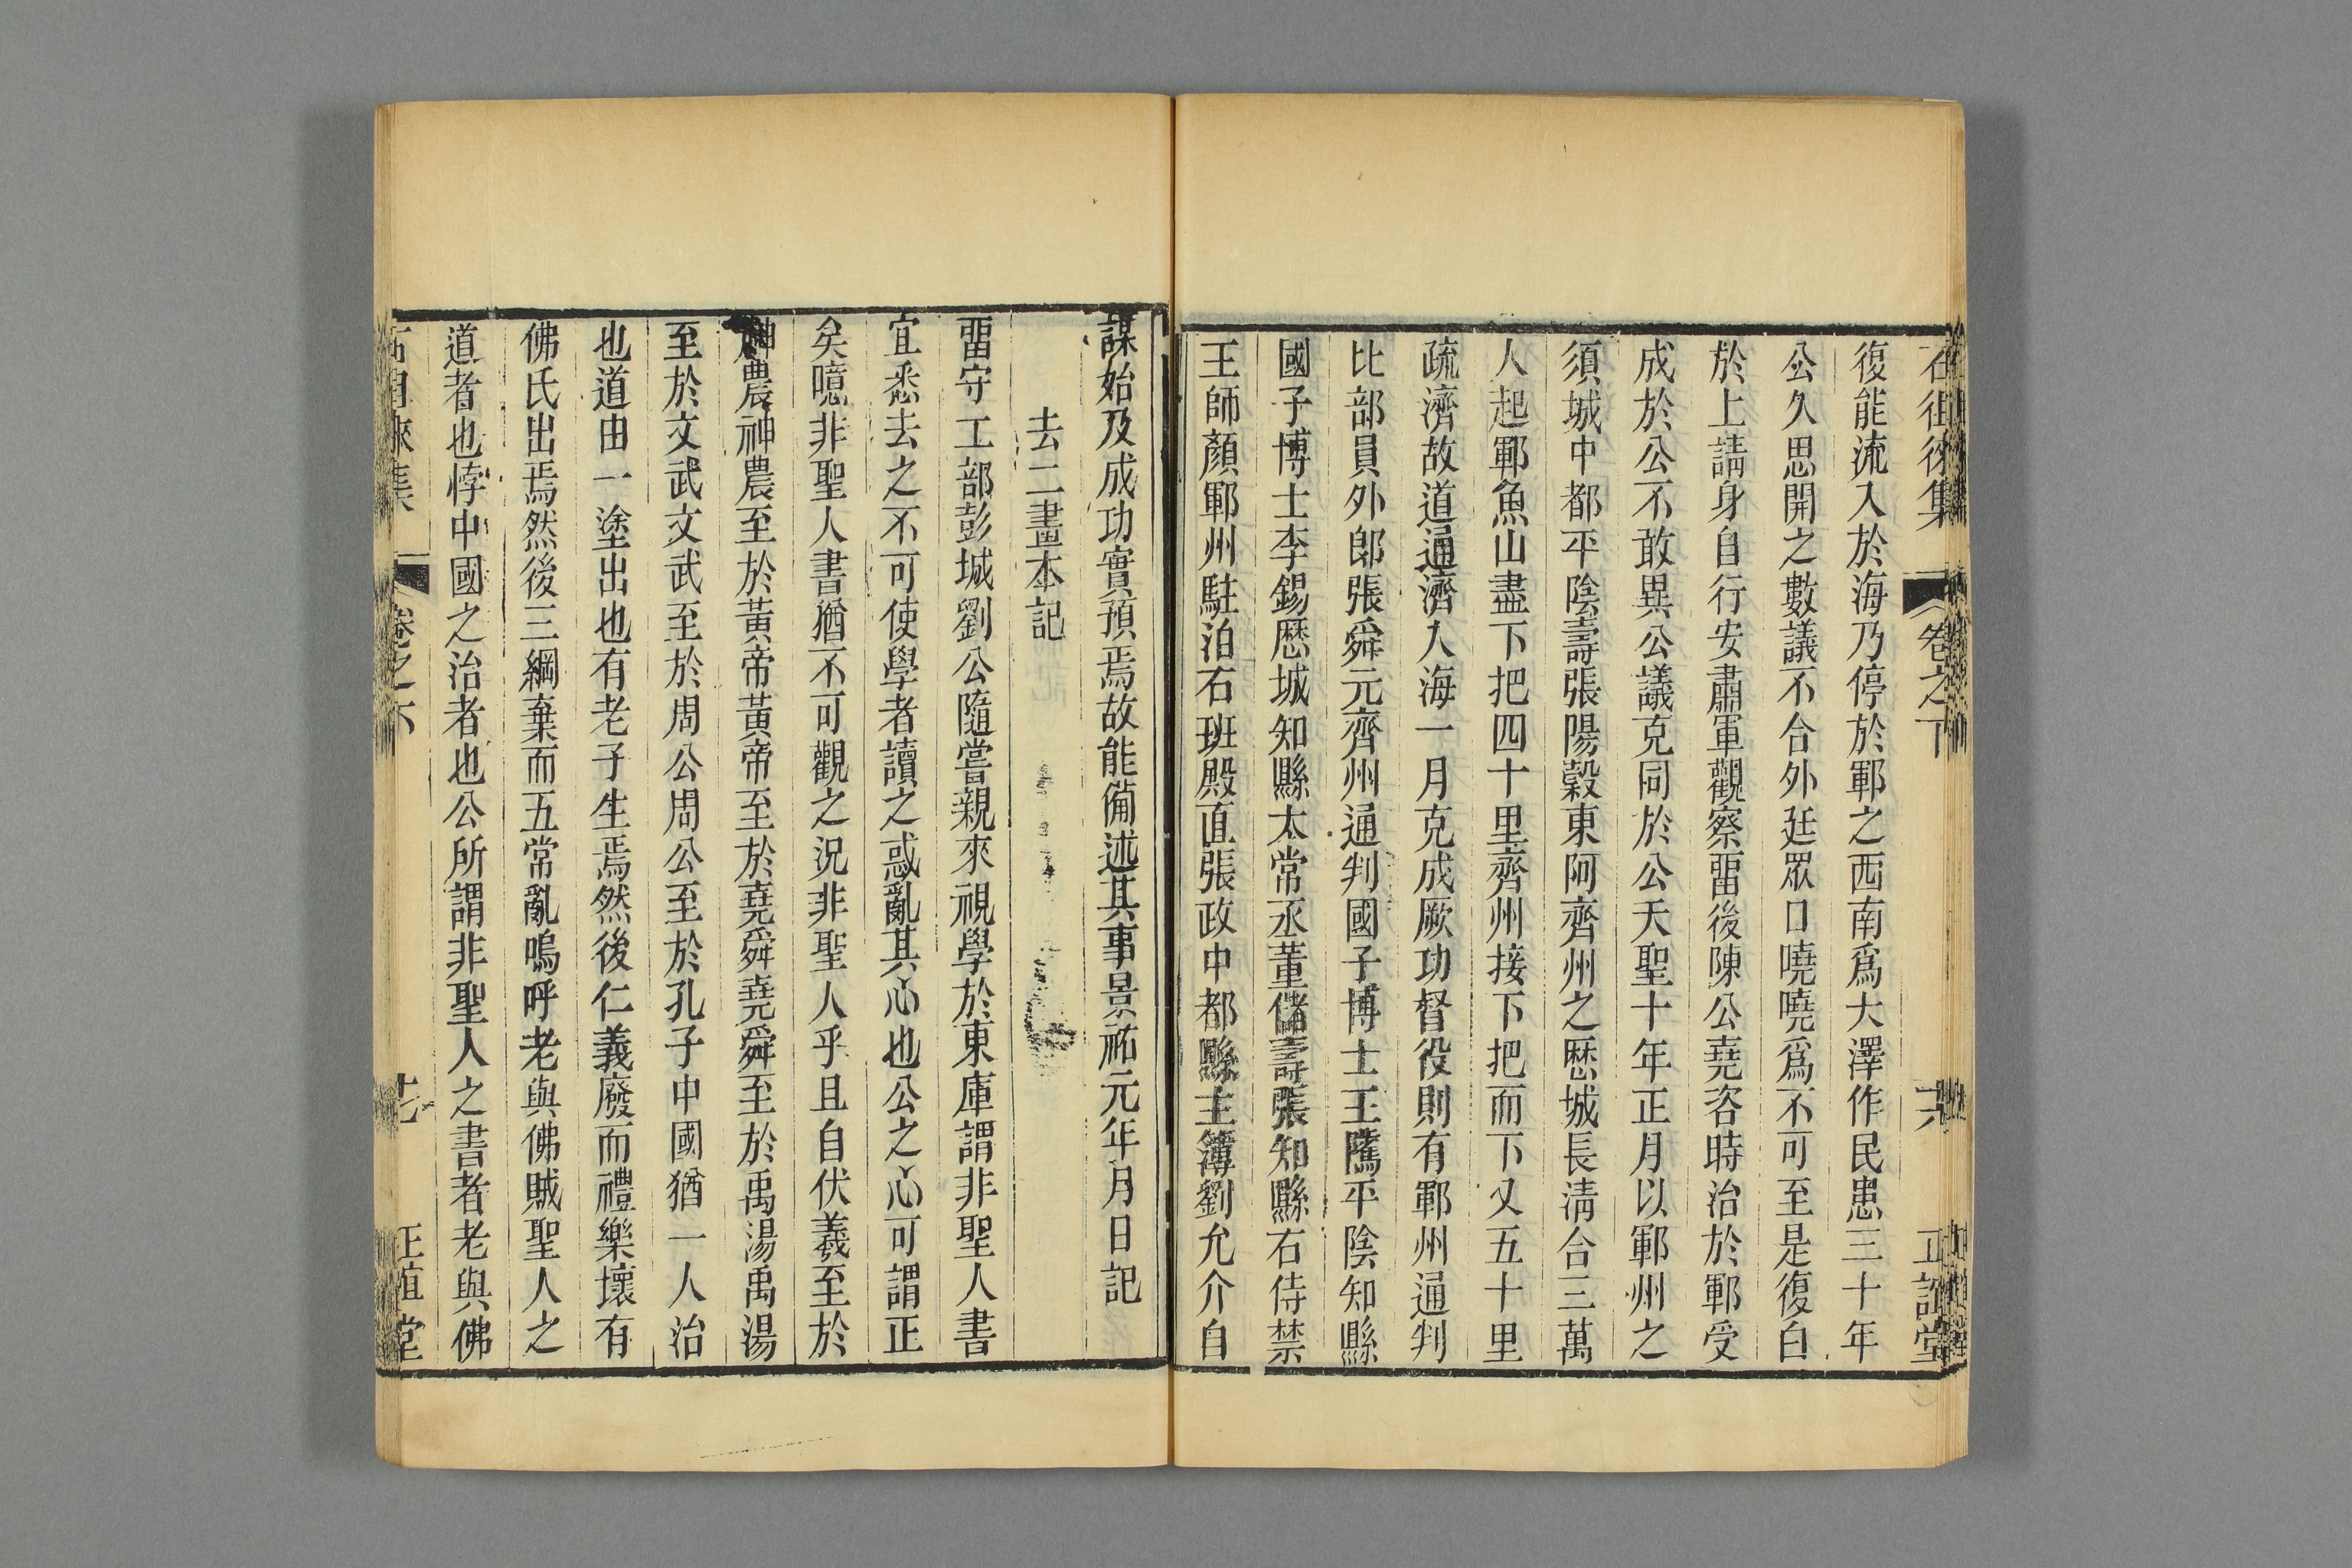 石徂徠集 卷之下 六 正誼堂
復能流入於海乃停於鄆之西南爲大澤作民患三十年
公久思開之數議不合外廷眾口嘵嘵爲不可至是復白
於上請身自行安肅軍觀察畱後陳公堯咨時治於鄆受
成於公不敢異公議克同於公天聖十年正月以鄆州之
須城中都平陰壽張陽穀東阿齊州之歷城長淸合三萬
人起鄆魚山盡下把四十里齊州接下把而下又五十里
疏濟故道通濟入海一月克成厥功督役則有鄆州通判
比部員外郎張舜元齊州通判國子博士王隲平陰知縣
國子博士李錫歷城知縣太常丞董儲壽張知縣右侍禁
王師顏鄆州駐泊右班殿直張政中都縣主簿劉允介自
謀始及成功實預焉故能備述其事景祐元年月日記
去二畫本記
畱守工部彭城劉公隨嘗親來視學於東庫謂非聖人書
宜悉去之不可使學者讀之惑亂其心也公之心可謂正
矣噫非聖人書猶不可觀之況非聖人乎且自伏羲至於
神農神農至於黃帝黃帝至於堯舜堯舜至於禹湯禹湯
至於文武文武至於周公周公至於孔子中國猶一人治
也道由一塗出也有老子生焉然後仁義廢而禮樂壞有
佛氏出焉然後三綱棄而五常亂嗚呼老與佛賊聖人之
道者也悖中國之治者也公所謂非聖人之書者老與佛
石徂徠集 卷之下 正誼堂